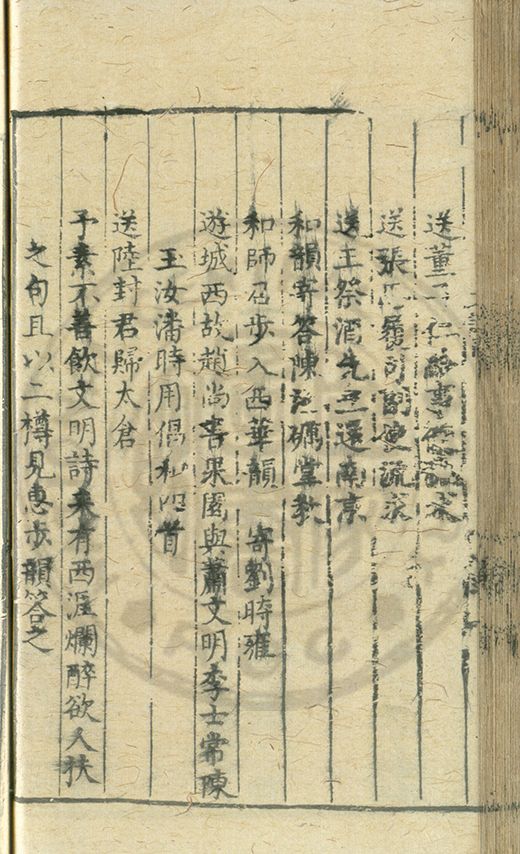 送董子仁給事使流求
送張 履同副使流求
送王祭酒先生還南京
和韻寄答陳 礪掌教
和師召步入西華韻　寄劉時雍
遊城西故趙尚書果園與蕭文明李士常陳
玉汝潘時用倡和四首
送陸封君歸太倉
予素不善飲文明詩來有西涯爛醉欲人扶
之句且以二樽見惠步韻答之